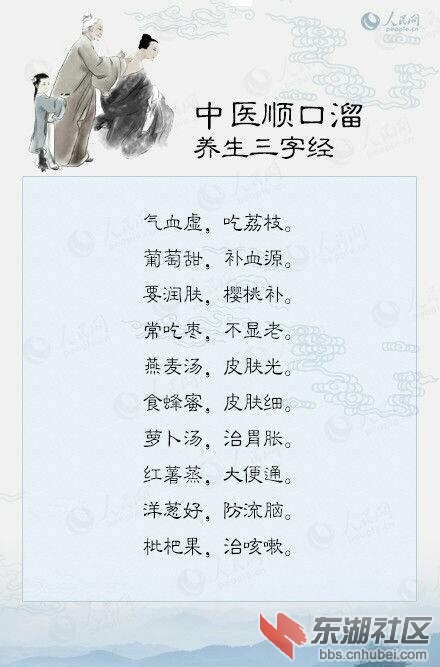 人民网
people.cn
中医顺口溜
养生三字经
气血虚，吃荔枝。
葡萄甜，补血源。
要润肤，樱桃补。
常吃枣，不显老。
燕麦汤，皮肤光。
食蜂蜜，皮肤细。
萝卜汤，治胃胀。
红薯蒸，大便通。
洋葱好，防流脑。
枇杷果，治咳嗽。
东湖社区
bbs.cnhubei.com